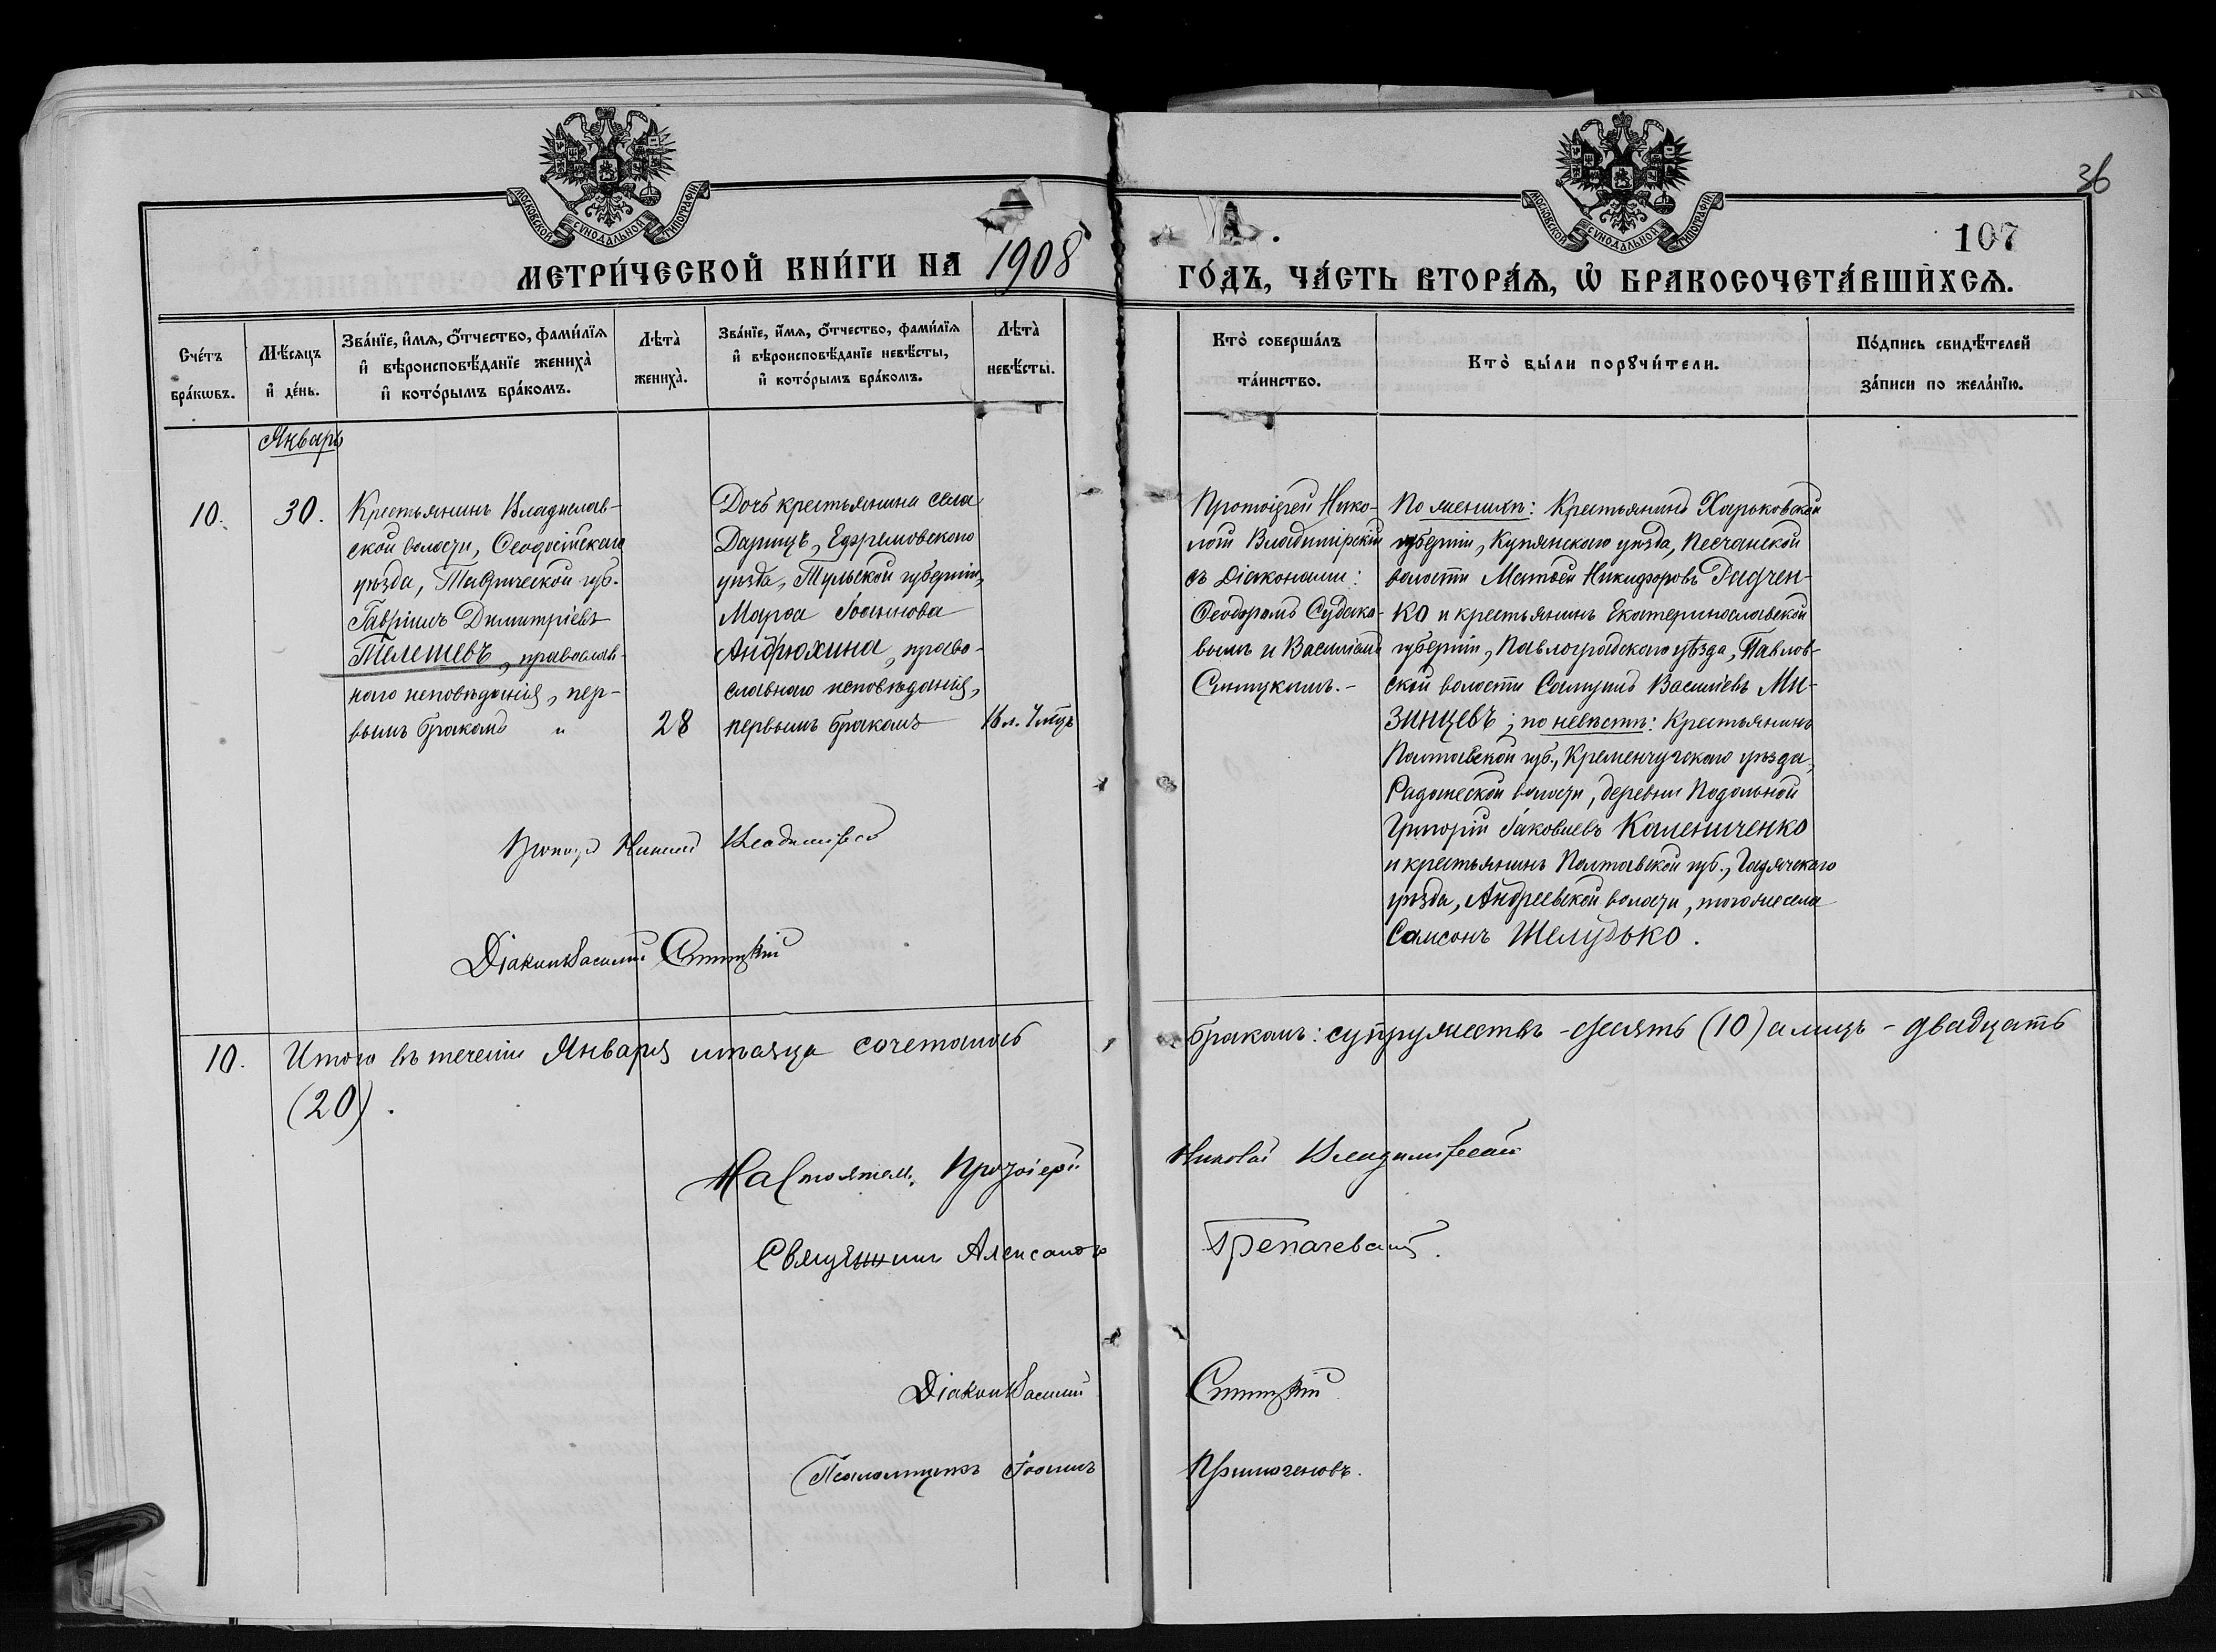 36
107
МОСКОВСКОЙ СѴНОДАЛЬНОЙ ТИПОГРАФІИ
МОСКОВСКОЙ СѴНОДАЛЬНОЙ ТИПОГРАФІИ
МЕТРИ́ЧЕСКОЙ КНИ́ГИ НА 1908 ГО́ДЪ, ЧА́СТЬ ВТОРА́Ѧ, Ѡ҆ БРАКОСОЧЕТА́ВШИХСѦ.
Сче́тъ бра́кѡвъ.
Мѣ́сѧцъ и҆ де́нь.
Зва́нїе, и҆́мѧ, ѻ҆́тчество, фами́лїѧ
и҆ вѣроисповѣ́данїе жениха̀
и҆ кото́рымъ бра́комъ.
Лѣта̀ жениха̀.
Зва́нїе, и҆́мѧ, ѻ҆́тчество, фами́лїѧ
и҆ вѣроисповѣ́данїе невѣ́сты,
и҆ кото́рымъ бра́комъ.
Лѣта̀ невѣ́сты.
Кто̀ соверша́лъ та́инство.
Кто̀ бы́ли порꙋчи́тели.
По́дпись свидѣ́телей за́писи по жела́нїю.
Январь
10.
30.
Крестьянинъ Владислав-
ской волости, Ѳеодосійскаго
уѣзда, Таврической губ.
Гавріилъ Димитріевъ
Телешевъ, православ-
наго исповѣданія, пер-
вымъ бракомъ "
28
Дочь крестьянина села
Дарищъ, Ефремовского
уѣзда, Тульской губерніи,
Марѳа Іоаннова
Андрюхина, право-
славнаго исповѣданія,
первымъ бракомъ
16 л. 7 мѣц.
Протоіерей Нико-
лай Владимірскій
съ діаконами:
Ѳеодоромъ Судако-
вымъ и Василіемъ
Ситуцкимъ.-
По женихѣ: Крестьянинъ Харьковской
губерніи, Купянскаго уѣзда, Песчанской
волости Матѳей Никифоровъ Радчен-
ко и крестьянинъ Екатеринославской
губерніи, Павлоградскаго уѣзда, Павлов-
ской волости Самуилъ Василіевъ Ми-
зинцевъ; по невѣстѣ: Крестьянинъ
Полтавской губ., Кременчугскаго уѣзда,
волости, деревни Подольной
Григорій Іаковлевъ Калениченко
и крестьянинъ Полтавской губ., Гадячскаго
уѣзда, Андреевской волости, того же села
Самсонъ Шелудько.
Протоіер Николай Владимірскій
Діаконъ Василій
10.
Итого въ теченіи Января мѣсяца сочеталось бракомъ: супружествъ - десять (10) а лицъ - двадцать
(20).
Настоятель, Протоіерей Николай Владимірскій
Священникъ Александръ
Діаконъ Василій
Псаломщикъ Іоаннъ